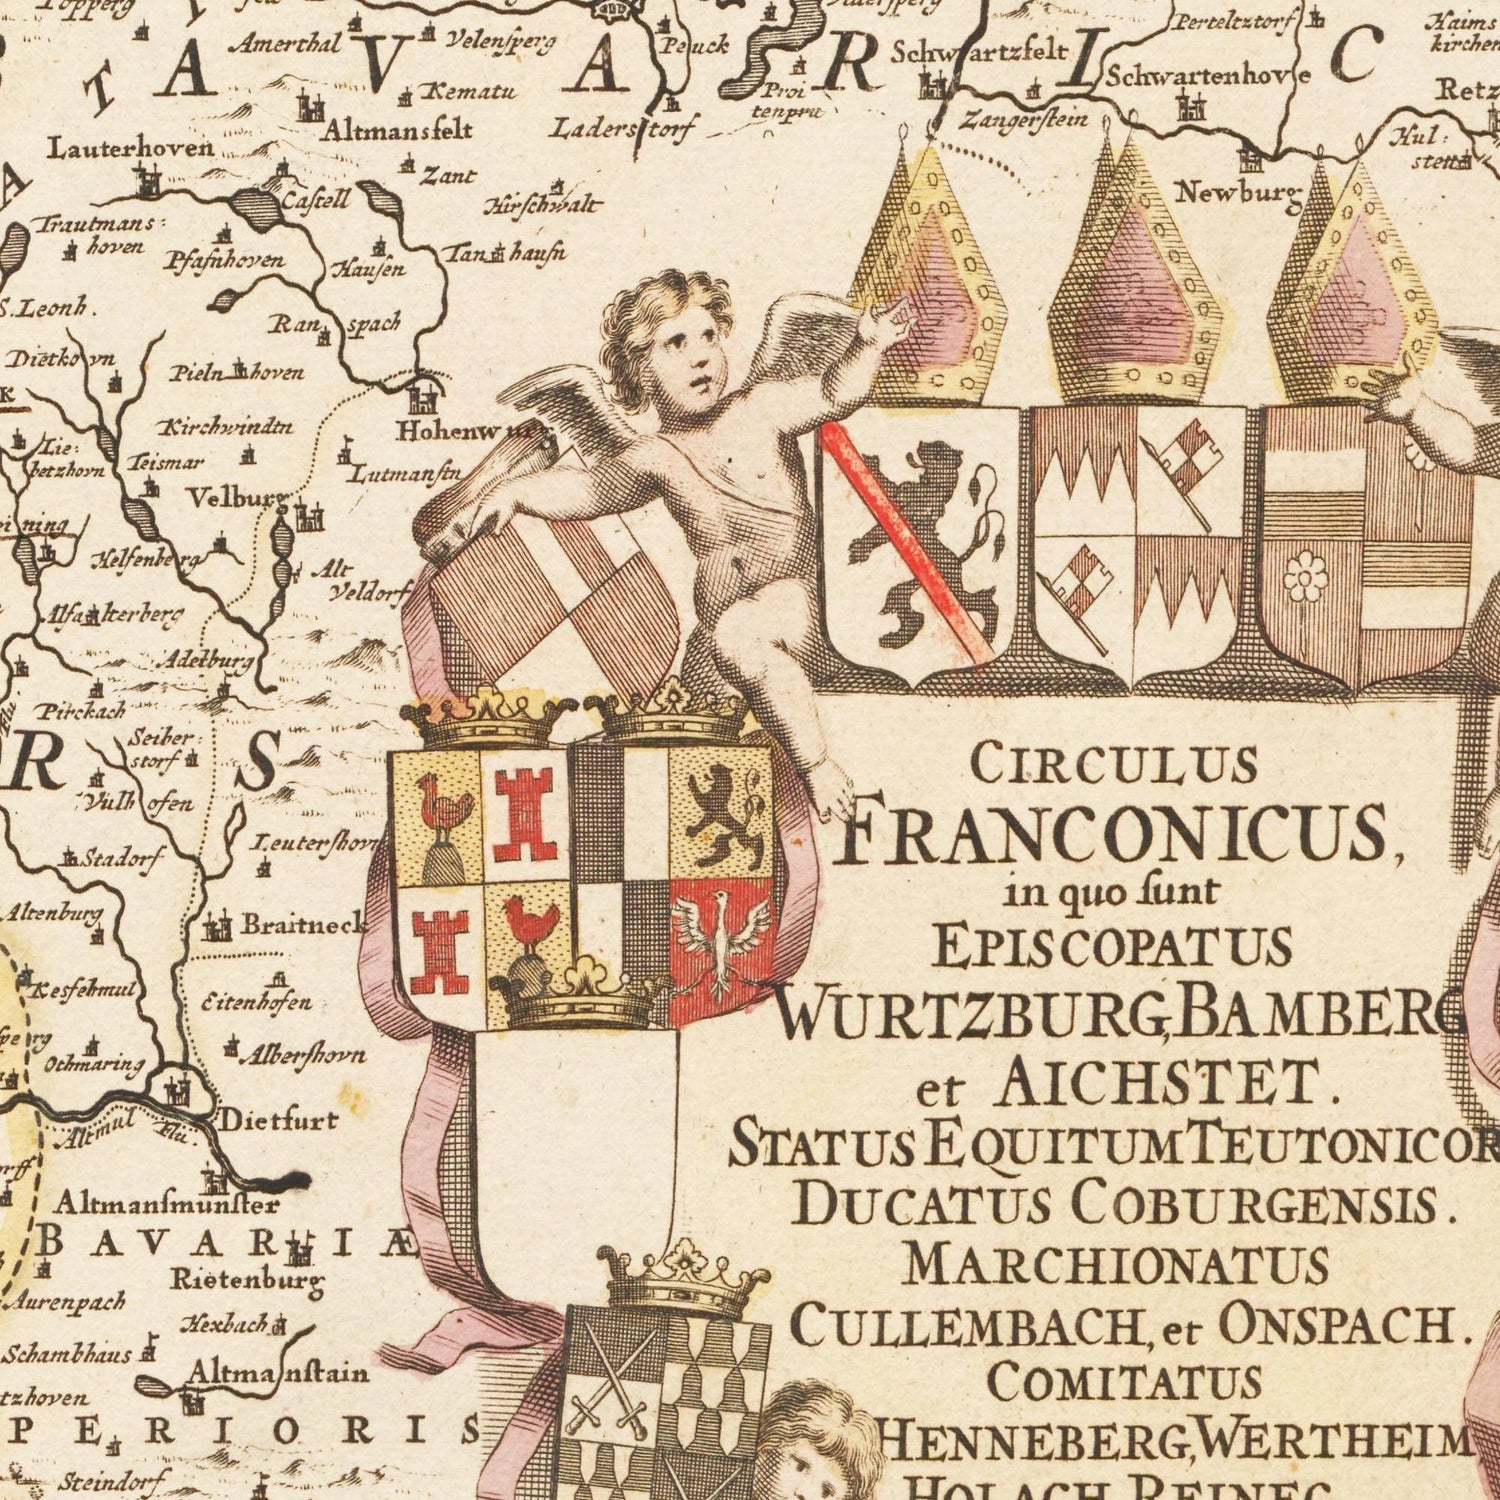 Amerthal
Velensperg
Peuck
Schwartzfelt
Perteltztorf
Haims
kirchen
T A V A R I C
Kematu
Proi
tenpru
Schwartenhove
Retz
Lauterhoven
Altmansfelt
Laderstorf
Zangerstein
Hul:
stett
Castell
Zant
Hirschwalt
Newburg
Trautmans:
hoven
Pfafnhoven
Hausen
Tanhausn
S. Leonh.
Ran spach
Dietkovn
Pielnhoven
Kirchwindtn
Hohenwurg
Lie:
betzhorn
Teismar
Lutmanstn
Velburg
ning
Helfenberg
Alt
Veldorf
Alfalterberg
Adelburg
Pirckach
R S
Seiber:
storf
Vulhofen
Stadorf
Leutershovn
Altenburg
Braitneck
Kesfehmul
Eitenhofen
Othmaring
Albershovn
Altmul Flu.
Dietfurt
Altmansmunster
BAVARIÆ
Rietenburg
Aurenpach
Hexbach
Schambhaus
Altmanstain
tzhoven
PERIORIS
Steindorf
CIRCULUS
FRANCONICUS,
in quo sunt
EPISCOPATUS
WURTZBURG, BAMBERG
et AICHSTET.
STATUS EQUITUM TEUTONICOR
DUCATUS COBURGENSIS.
MARCHIONATUS
CULLEMBACH, et ONSPACH.
COMITATUS
HENNEBERG, WERTHEIM
HOLACH REINEC